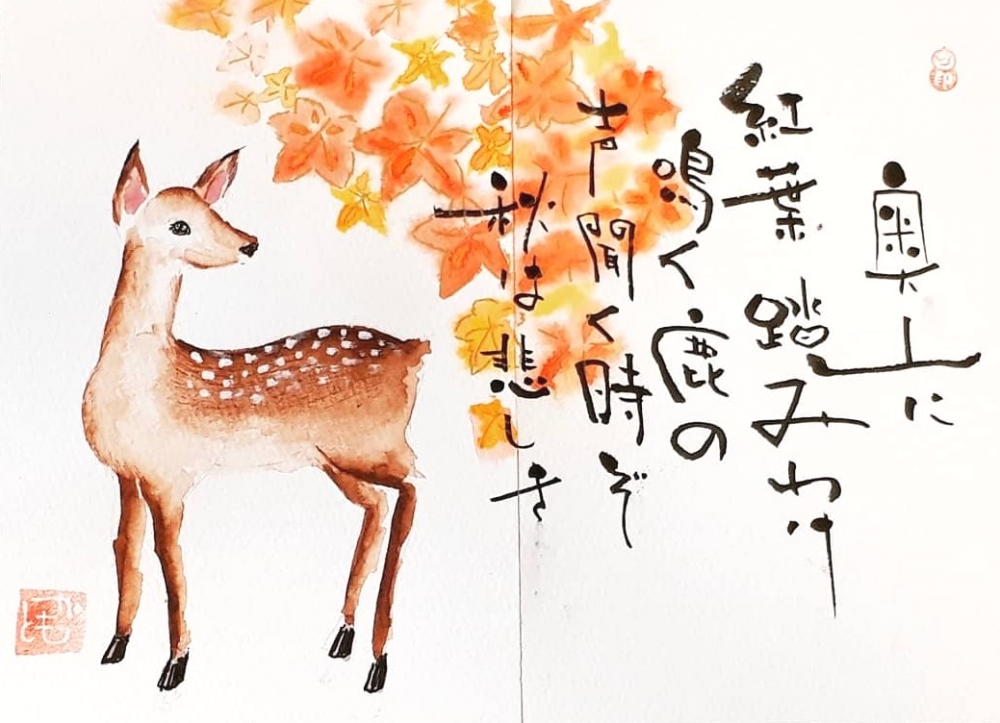 奥山に
紅葉踏みわけ
鳴く鹿の
声聞く時ぞ
秋は悲しき